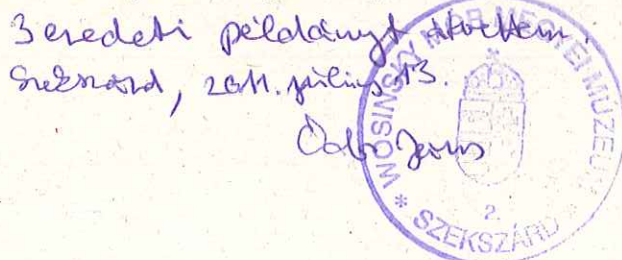 3 eredeti példányt átvettem.
Szekszárd, 2011. július 13.
Ódor János
WOSINSKY MÓR MEGYEI MÚZEUM
* SZEKSZÁRD *
2.